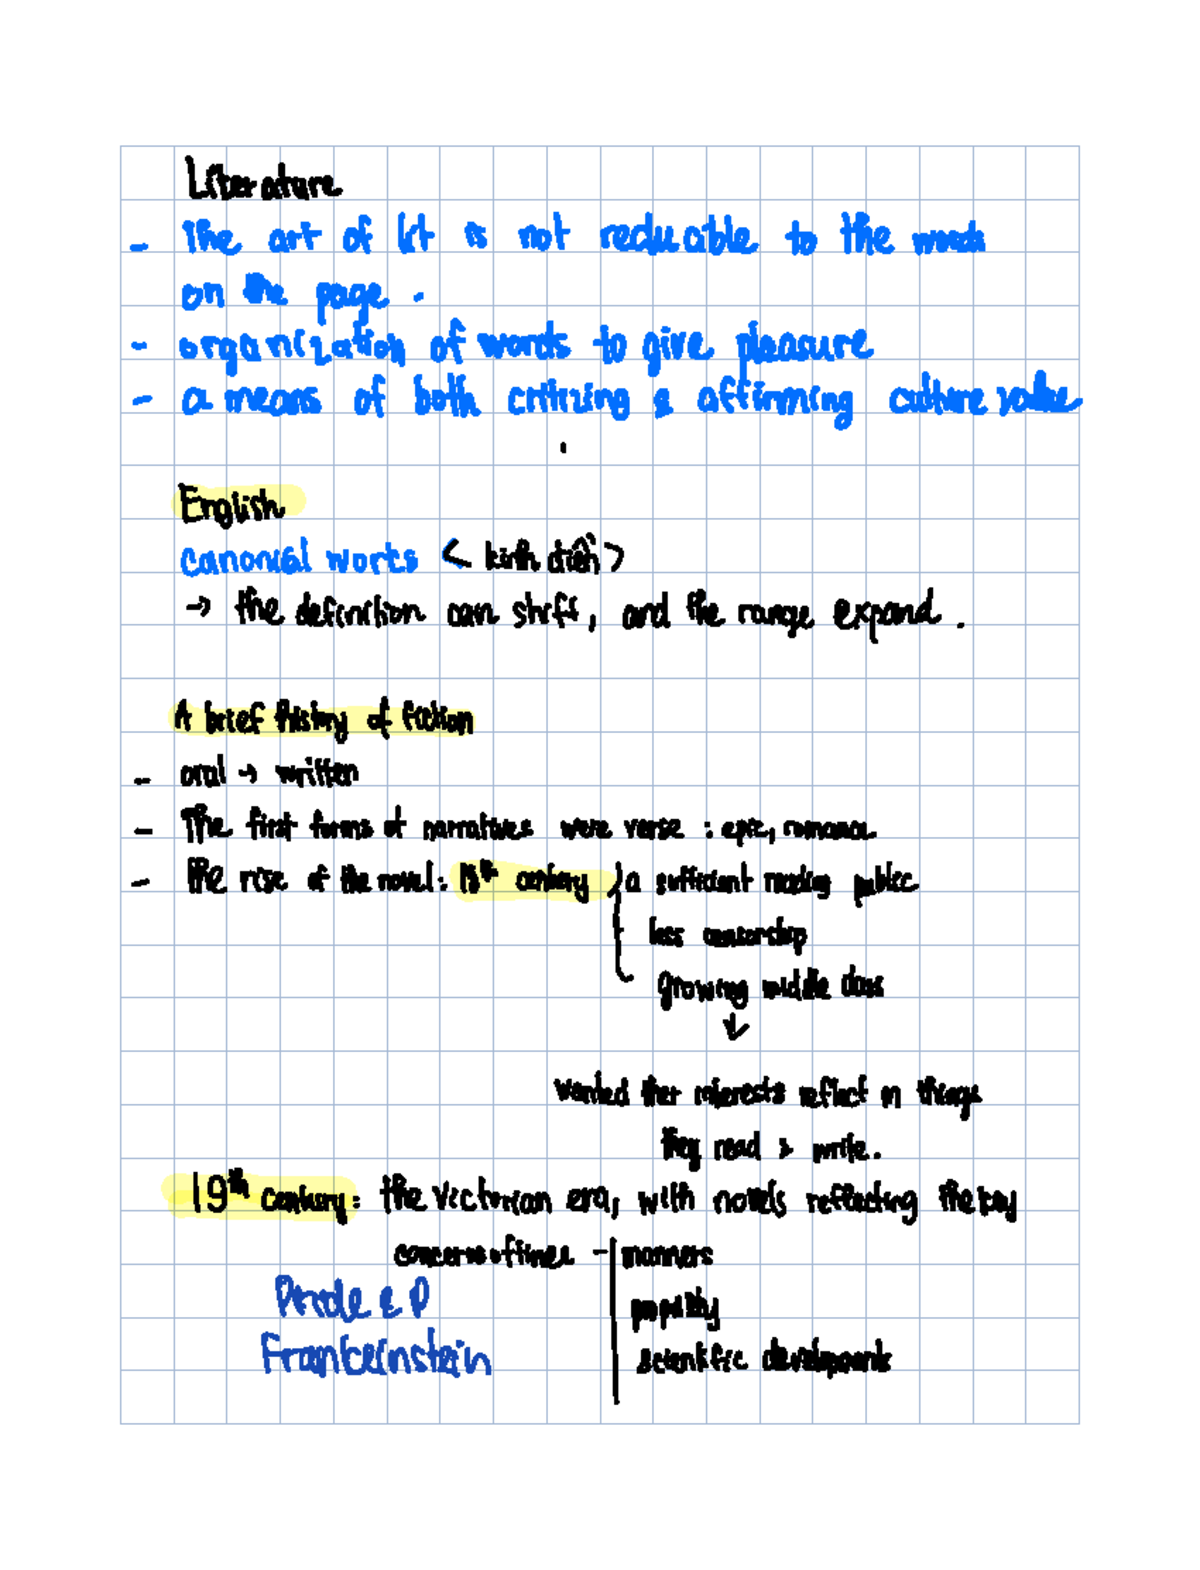 Literature
- The art of lit is not reducible to the words
on the page.
- organization of words to give pleasure
- a means of both critizing & affirming culture value
English
canonial works < kinh điển >
→ the definition can shift, and the range expand.
A brief history of fiction
- oral → written
- The first forms of narratives were verse : epic, romance
- The rise of the novel: 18th century a sufficient reading public
less censorship
growing middle class
↓
wanted their interests reflect on things
they read & write.
19th century: the Victorian era, with novels reflecting the key
concerns of time - manners
scientific developments
Pride & P
Frankeinstein